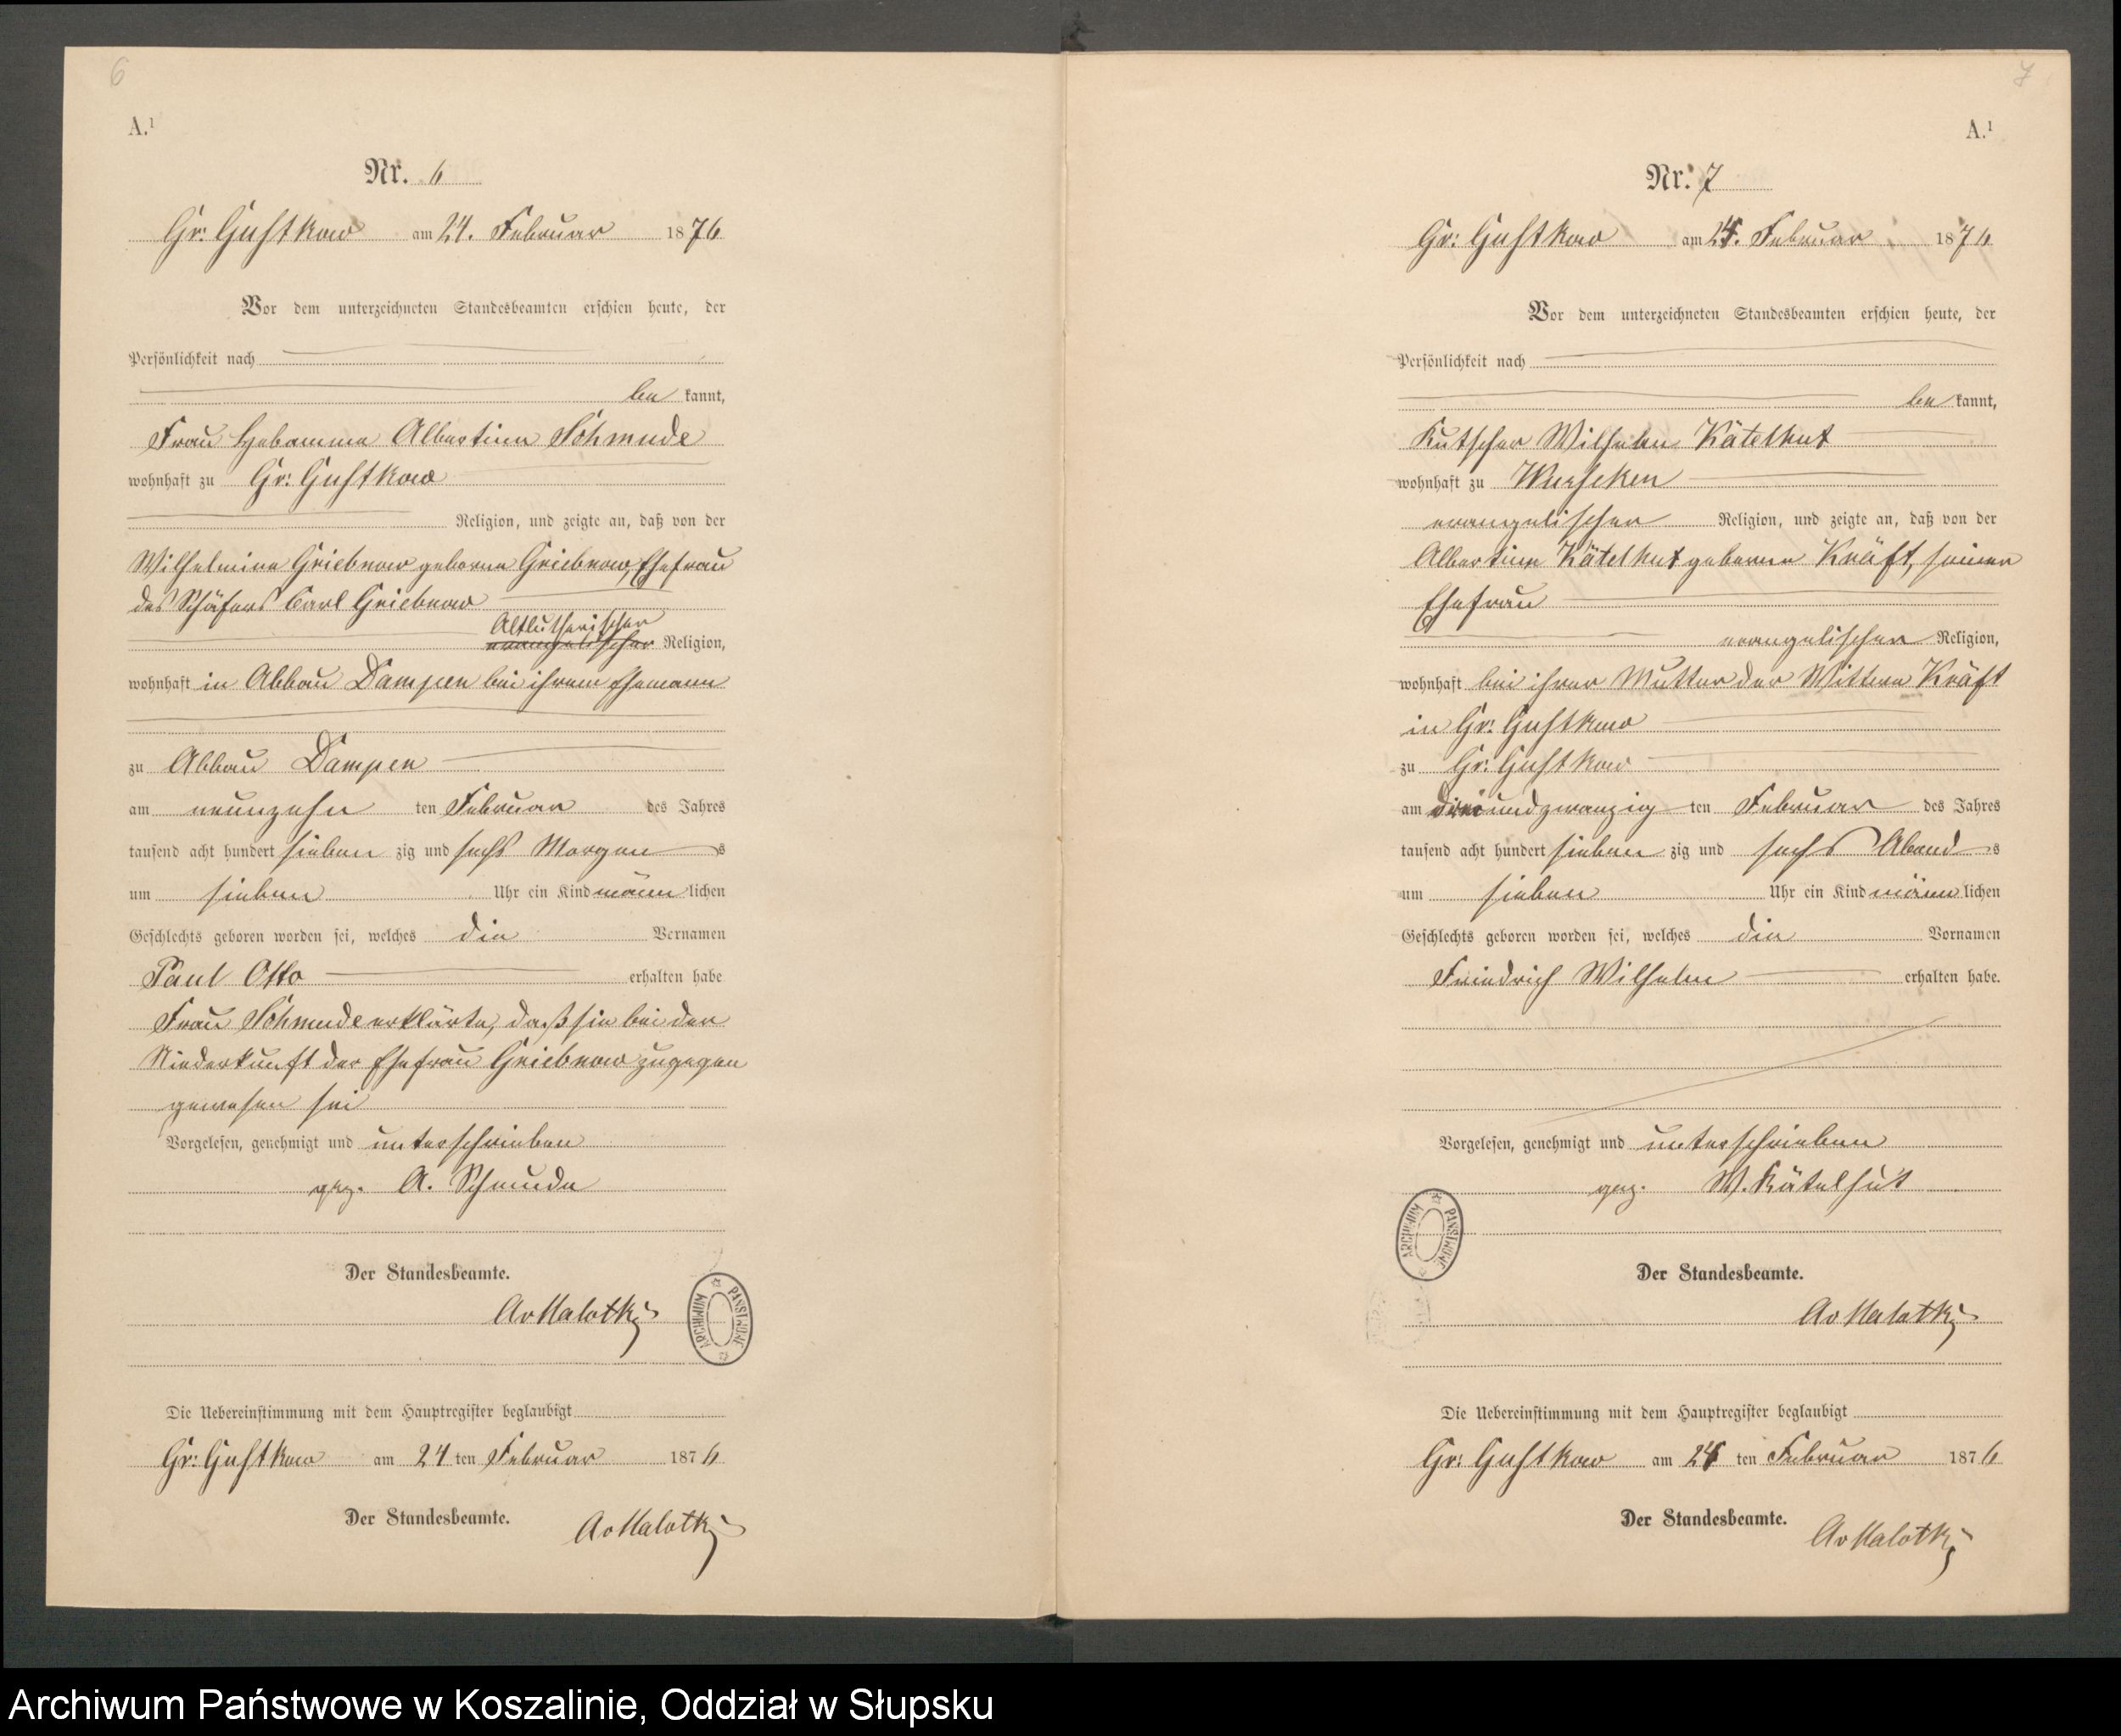 6
A.¹
Nr. 6
Gr: Gustkow am 24. Februar 1876
Vor dem unterzeichneten Standesbeamten erschien heute, der
Persönlichkeit nach
be kannt,
Frau Hebamme Albertine Schmude
wohnhaft zu Gr: Gustkow
Religion, und zeigte an, daß von der
Wilhelmine Griebnow geborne Griebnow, Ehefrau
des Schäfers Carl Griebnow
Altlutherischer
evangelischer Religion,
wohnhaft in Abbau Dampen bei ihrem Ehemann
zu Abbau Dampen
am neunzehn ten Februar des Jahres
tausend acht hundert sieben zig und sechs Morgen s
um sieben Uhr ein Kind männ lichen
Geschlechts geboren worden sei, welches die Vornamen
Paul Otto erhalten habe
Frau Schmude erklärte, daß sie bei der
Niederkunft der Ehefrau Griebnow zugegen
gewesen sei
Vorgelesen, genehmigt und unterschrieben
gez. A. Schmude
Der Standesbeamte.
AvMalotki
ARCHIWUM PAŃSTWOWE
Die Uebereinstimmung mit dem Hauptregister beglaubigt
Gr: Gustkow am 24 ten Februar 1876
Der Standesbeamte.
AvMalotki
7
A.¹
Nr. 7
Gr: Gustkow am 24. Februar 1876
Vor dem unterzeichneten Standesbeamten erschien heute, der
Persönlichkeit nach
be kannt,
Kutscher Wilhelm Kätelhut
wohnhaft zu Wuseken
evangelischer Religion, und zeigte an, daß von der
Albertine Kätelhut geborne Kräft, seiner
Ehefrau
evangelischer Religion,
wohnhaft bei ihrer Mutter der Wittwe Kräft
in Gr: Gustkow
zu Gr: Gustkow
am dreiundzwanzig ten Februar des Jahres
tausend acht hundert sieben zig und sechs Abend s
um sieben Uhr ein Kind männ lichen
Geschlechts geboren worden sei, welches die Vornamen
Friedrich Wilhelm erhalten habe.
Vorgelesen, genehmigt und unterschrieben
gez. W. Kätelhut
ARCHIWUM PAŃSTWOWE
Der Standesbeamte.
AvMalotki
Die Uebereinstimmung mit dem Hauptregister beglaubigt
Gr: Gustkow am 24 ten Februar 1876
Der Standesbeamte.
AvMalotki
Archiwum Państwowe w Koszalinie, Oddział w Słupsku